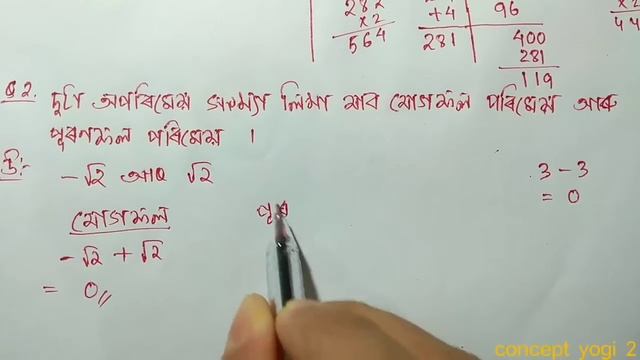 282
×2
564
+4
281
96
400
281
119
×2
44
Q2. দুটা অপৰিমেয় সংখ্যা লিখা যাৰ যোগফল পৰিমেয় আৰু
পূৰণফল পৰিমেয় ।
উ:-
-√2 আৰু √2
3 - 3
= 0
যোগফল
-√2 + √2
= 0,,
পূৰ
concept yogi 2